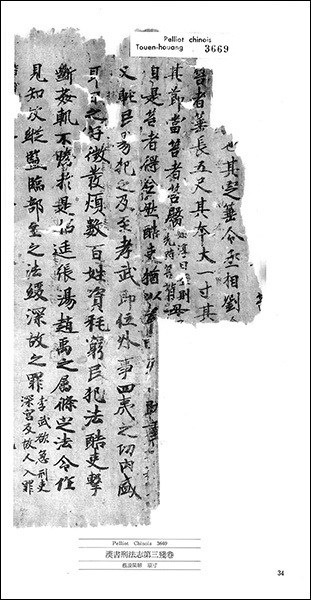 Pelliot chinois
Touen-houang 3669
也其定箠令丞相劉
笞者箠長五尺其本大一寸其
其節當笞者笞臀 先時笞背 毋
自是笞者得全然酷吏猶以
又輕民易犯之及至孝武即位外事四夷之功內盛
耳目之好徵發煩數百姓貧耗窮民犯法酷吏擊
斷姦軌不勝於是招進張湯趙禹之屬條定法令作
見知故縱監臨部主之法緩深故之罪 孝武欲急刑吏深害及故人入罪
Pelliot Chinois 3669
漢書刑法志第三殘卷
34